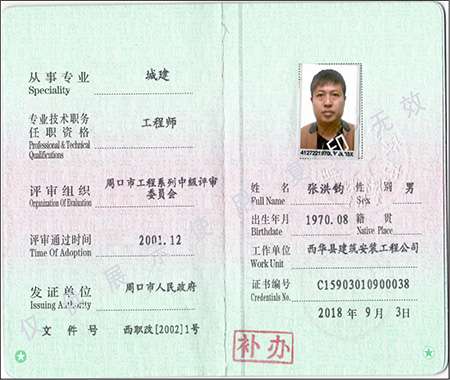 从事专业 城建
Speciality
专业技术职务
任职资格 工程师
Professional & Technical
Qualifications
评审组织 周口市工程系列中级评审
委员会
Organization Of Evaluation
评审通过时间 2001.12
Time Of Adoption
发证单位 周口市人民政府
Issuing Authority
文件号 西职改[2002]1号
姓名 张洪钧 性别 男
Full Name Sex
出生年月 1970.08 籍贯
Birthdate Native Place
工作单位 西华县建筑安装工程公司
Work Unit
证书编号 C15903010900038
Credentials No.
2018年9月3日
补办